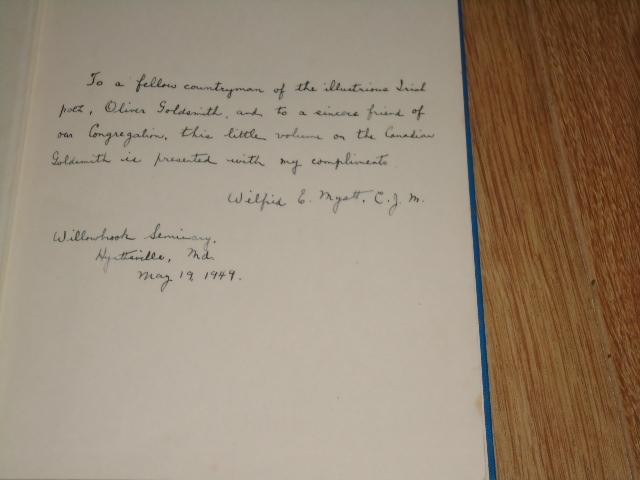 To a fellow countryman of the illustrious Irish
poet, Oliver Goldsmith, and to a sincere friend of
our Congregation, this little volume on the Canadian
Goldsmith is presented with my compliments
Wilfrid E. Myatt, C.J.M.
Willowbrook Seminary,
Hyattsville, Md.
May 19, 1949.